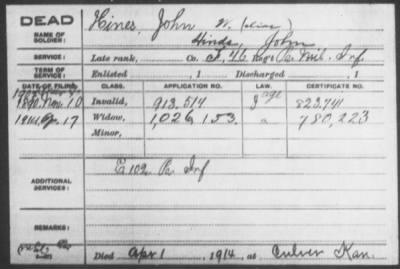 DEAD Hines, John W. (alias)
NAME OF SOLDIER: Hinds, John
SERVICE: Late rank, Co. F, 46 Reg't Pa. Mil. Inf.
TERM OF SERVICE: Enlisted , 1 Discharged , 1
DATE OF FILING. CLASS. APPLICATION NO. LAW. CERTIFICATE NO.
1890 Nov. 10 Invalid, 913,514 823,741
1914 17 Widow, 1,026,153 780,223
Minor,
ADDITIONAL SERVICES: E 102 Pa Inf
REMARKS:
Died Apr 1 1914, at Culver Kan.